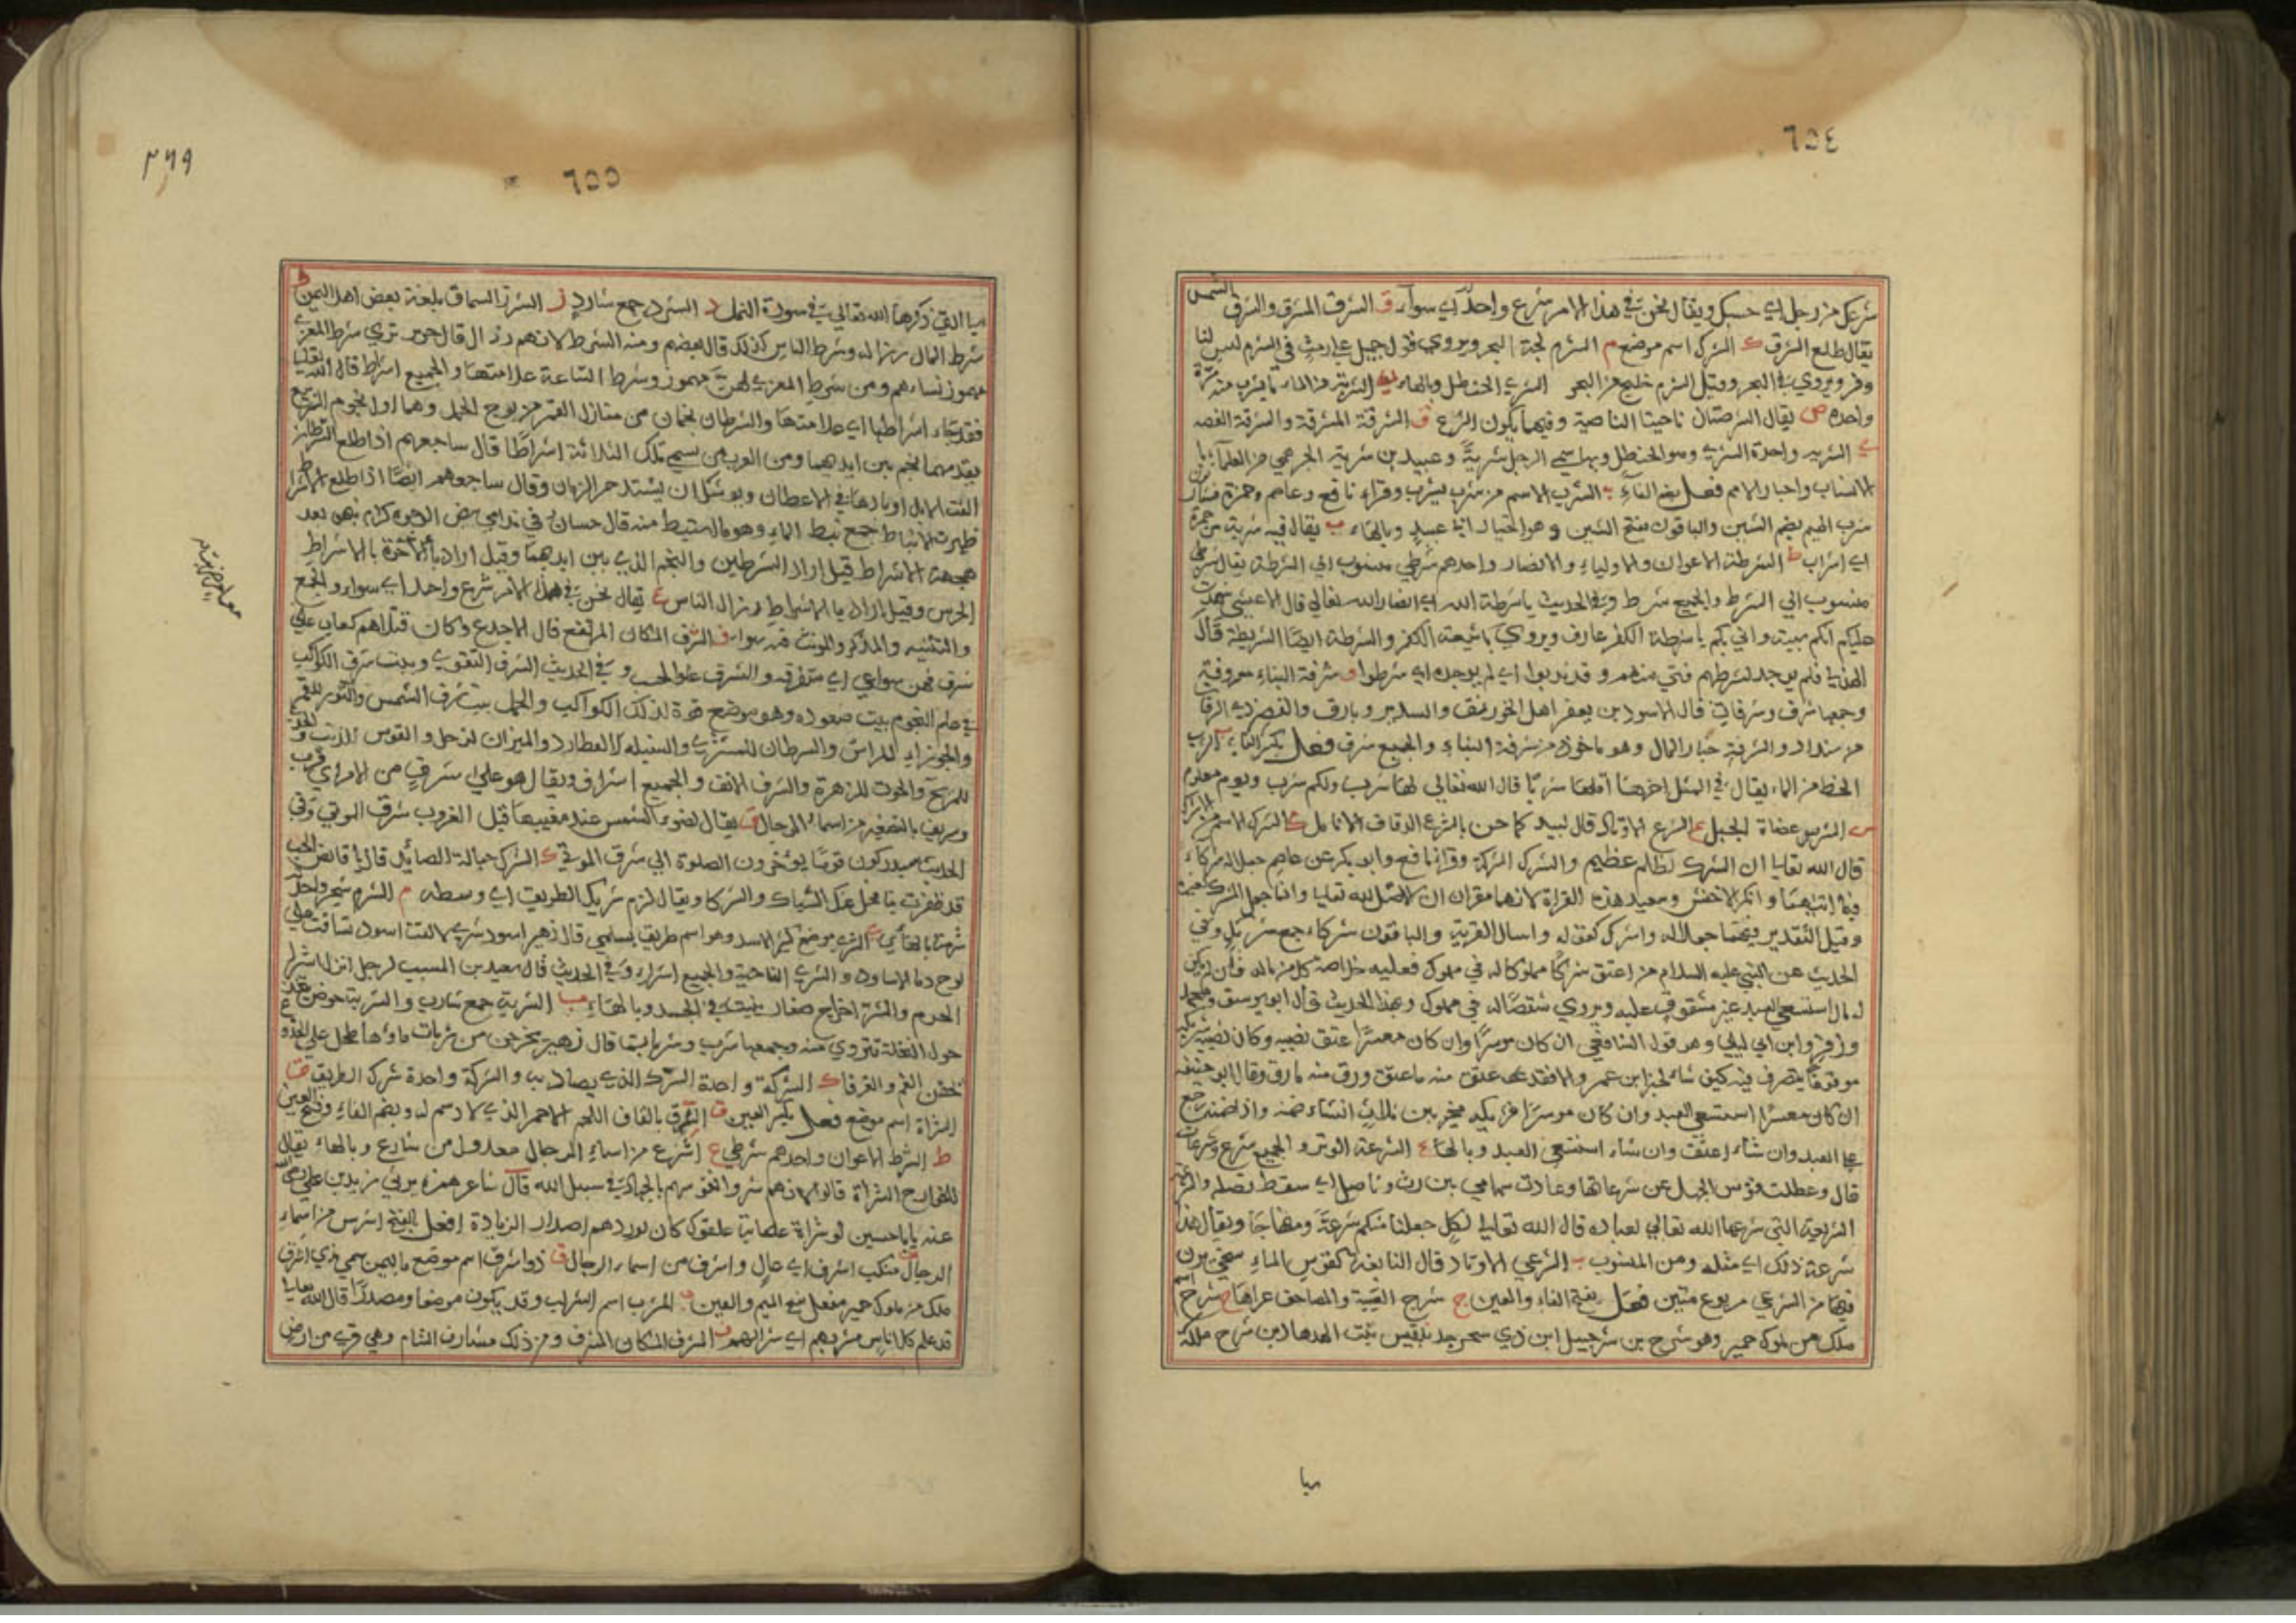 ٦٥٤
شرعك من رجل اي حسبك ويقال نحن في هذا الامر شرع واحد اي سواء ق الشرق المشرق والشرق الشمس
يقال طلع الشرق ك الشرك اسم موضع م الشرم لجة البحر ويروى قول جميل
وقر ويروى في البحر وقيل الشرم خليج من البحر الشري الحنظل وبالهاء الشربة من الماء ما يشرب منه مرة
واحدة ص يقال الشرصتان ناحيتا الناصية وفيهما يكون النزع ق الشرقة المشرقة والشرقة الغصة
ي الشرية واحدة الشري وهو الحنظل وبها سمي الرجل شرية وعبيد بن شرية الجرهمي من العلماء
الانساب واخبار الامم فعل بضم الفاء ب الشرب الاسم من شرب يشرب وقراء نافع وعاصم وحمزة
شرب الهيم بضم الشين والباقون بفتح الشين وهو اختيار ابي عبيد وبالهاء ب يقال فيه شربة من حمرة
اي اشراب ط الشرطة الاعوان والاولياء والانصار واحدهم شرطي منسوب الى الشرطة يقال شرطي
منسوب الى الشرط والجميع شرط وفي الحديث يا شرطة الله اي انصار الله تعالى قال الاعشى شهدت
عليكم انكم سبية واني بكم يا شرطة الكفر عارف ويروى يا شيعة الكفر والشرطة ايضا الشريطة قال
الهذلي فلم يوجد لشرطهم فتى منهم وقد ندبوا اي لم يوجده اي شرطوا ف شرفة البناء معروفة
وجمعها شرف وشرفات قال الاسود بن يعفر اهل الخورنق والسدير وبارق والقصر ذي الشرفات
من سنداد والشرفة خيار المال وهو ماخوذ من شرفة البناء والجميع شرف فعل بكسر الفاء ب الشرب
الحظ من الماء يقال في المثل اخرها اقلها شربا قال الله تعالى لها شرب ولكم شرب يوم معلوم
س الشرس عضاة الجبل ع الشرع الاوتار قال لبيد كما حن بالشرع الدقاق الانامل ك الشرك الاسم من الاشراك
قال الله تعالى ان الشرك لظلم عظيم والشرك الشركة وقرا نافع وابو بكر عن عاصم جعلا له شركاء
فيما اتيهما وانكر الاخفش وسعيد هذه القراة لانهما مقران ان الاصل لله تعالى وانما جعل الشرك لغيره
وقيل التقدير فيهما جعلا له واشرك كقوله واسال القرية والباقون شركاء جمع شريك وفي
الحديث عن النبي عليه السلام من اعتق شركا مملوكا له في مملوك فعليه خلاصه كل من ماله فان لم يكن
له مال استسعي العبد غير مشقوق عليه ويروى شقصا له في مملوك وبهذا الحديث قال ابو يوسف ومحمد
وزفر وابن ابي ليلى وهو قول الشافعي ان كان موسرا وان كان معسرا عتق نصيبه وكان نصيب شريكه
موقوفا يتصرف فيه كيف شاء لخبر ابن عمر والا فقد عتق منه ما عتق ورق منه ما رق وقال ابو حنيفة
ان كان معسرا استسعي العبد وان كان موسرا فشريكه مخير بين ثلاث ان شاء ضمنه واذا ضمنه رجع
على العبد وان شاء اعتق وان شاء استسعى العبد وبالهاء ع الشرعة الوتر والجميع شرع وشرعات
قال وعطلت قوس الجهل عن شرعاتها وعادت سهامي بين رث وناصل اي سقط نصله والشرعة
الشريعة التي شرعها الله تعالى لعباده قال الله تعالى لكل جعلنا منكم شرعة ومنهاجا ويقال هذا
شرعة ذلك اي مثله ومن المنسوب ب الشرعي الاوتاد قال النابغة كقوس الماسخي يرن
فيها من الشرعي مربوع متين فعل بفتح الفاء والعين ج شرج العيبة والمصاحف عراها ح شرح اسم
ملك من ملوك حمير وهو شرح بن شرحبيل ابن ذي سحر جد بلقيس بنت الهدهاد بن شرح ملكة
سبا
٣٦٩
٦٥٥
سبا التي ذكرها الله تعالى في سورة النمل د الشرد جمع شارد ز الشرز السماق بلغة بعض اهل اليمن ط
شرط المال رذاله وشرط الناس كذلك قال بعضهم ومنه الشرط لانهم رذال قال جرير ترى شرط المعزى
مهور نساءهم ومن شرط المعزى لهن مهور وشرط الساعة علامتها والجميع اشراط قال الله تعالى
فقد جاء اشراطها اي علامتها والشرطان نجمان من منازل القمر من برج الحمل وهما اول نجوم الربيع
يقدمهما نجم بين ايديهما ومن العرب من يسمي تلك الثلاثة اشراطا قال ساجعهم اذا طلع الشرطان
القت الابل اوبارها في الاعطان ويوشك ان يشتد حر الزمان وقال ساجعهم ايضا اذا طلع الاشراط
ظهرت الانباط جمع نبط الماء وهو ما استنبط منه قال حسان في ندامى بيض الوجوه كرام نبهوا بعد
هجعة الاشراط قيل اراد الشرطين والنجم الذي بين ايديهما وقيل اراد بالاشراط
الحرس وقيل اراد بالاشراط رذال الناس ع يقال نحن في هذا الامر شرع واحد اي سواء والجمع
والتثنية والمذكر والمونث فيه سواء ف الشرف المكان المرتفع قال الاجدع وكان قتلاهم كعاب على
شرف فهن سواعي اي متفرقة والشرف علو الحسب وفي الحديث الشرف التقوى وبيت شرف الكواكب
في علم النجوم بيت صعوده وهو موضع قوة لذلك الكواكب والحمل بيت شرف الشمس والثور للقمر
والجوزاء للراس والسرطان للمشتري والسنبلة لعطارد والميزان لزحل والقوس للذنب والجدي
للمريخ والحوت للزهرة والشرف الانف والجميع اشراف ويقال هو على شرف من الامر اي قرب
وشريف بالتصغير من اسماء الرجال ق يقال لضوء الشمس عند مغيبها قبل الغروب شرق الموتى وفي
الحديث سيدركون قوما يؤخرون الصلوة الى شرق الموتى ك الشرك حبالة الصائد قال يا قانص الحب
قد ظفرت بنا فخل عنك الشباك والشركا ويقال لزم شرك الطريق اي وسطه م الشرم شجر واحدته
شرمة بالهاء ي الشرى موضع كثير الاسد وهو اسم طريق بسلمى قال زهير اسود شرى لاقت اسود تساقت على
لوح دماء الاساود والشرى الناحية والجميع اشراء وفي الحديث قال سعيد بن المسيب لرجل انزل اشراء
الحرم والشرى اخراج صغار ينبت في الجسد وبالهاء ب الشربة جمع شارب والشربة حوض يتخذ
حول النخلة تتروى منه وجمعها شرب وشربات قال زهير يخرجن من شربات ماؤها طحل على الجذوع
يخفن الغم والغرقا ك الشركة واحدة الشرك الذي يصاد به والشركة واحدة شرك الطريق
الشراة اسم موضع فعل بكسر العين ق الشرق بالقاف اللحم الاحمر الذي لا دسم له وبضم الفاء وفتح العين
ط الشرط الاعوان واحدهم شرطي ع شرع من اسماء الرجال معدول من شارع وبالهاء يقال
للخوارج الشراة قالوا لانهم شروا انفسهم بالجهاد في سبيل الله قال شاعر همزه يرثي زيد بن علي رضي الله
عنه يابا حسين لو شراة عصابة علقوك كان لوردهم اصدار الزيادة افعل بالفتح اشرس من اسماء
الرجال ف منكب اشرف اي عال واشرف من اسماء الرجال ق ذو اشرق اسم موضع باليمن سمي بذي اشرق
ملك من ملوك حمير مفعل بفتح الميم والعين ب المشرب اسم الشراب وقد يكون موضعا ومصدرا قال الله تعالى
قد علم كل اناس مشربهم اي شرابهم ف المشرف المكان المشرف ومن ذلك مشارف الشام وهي قرى من ارض